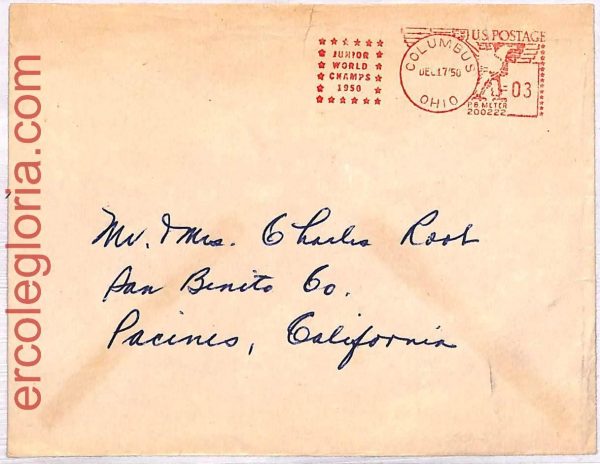 JUNIOR
WORLD
CHAMPS
1950
COLUMBUS
DEC 17 '50
OHIO
U.S. POSTAGE
03
P.B. METER
200222
Mr. & Mrs. Charles Root
San Benito Co.
Pacines, California
ercolegloria.com